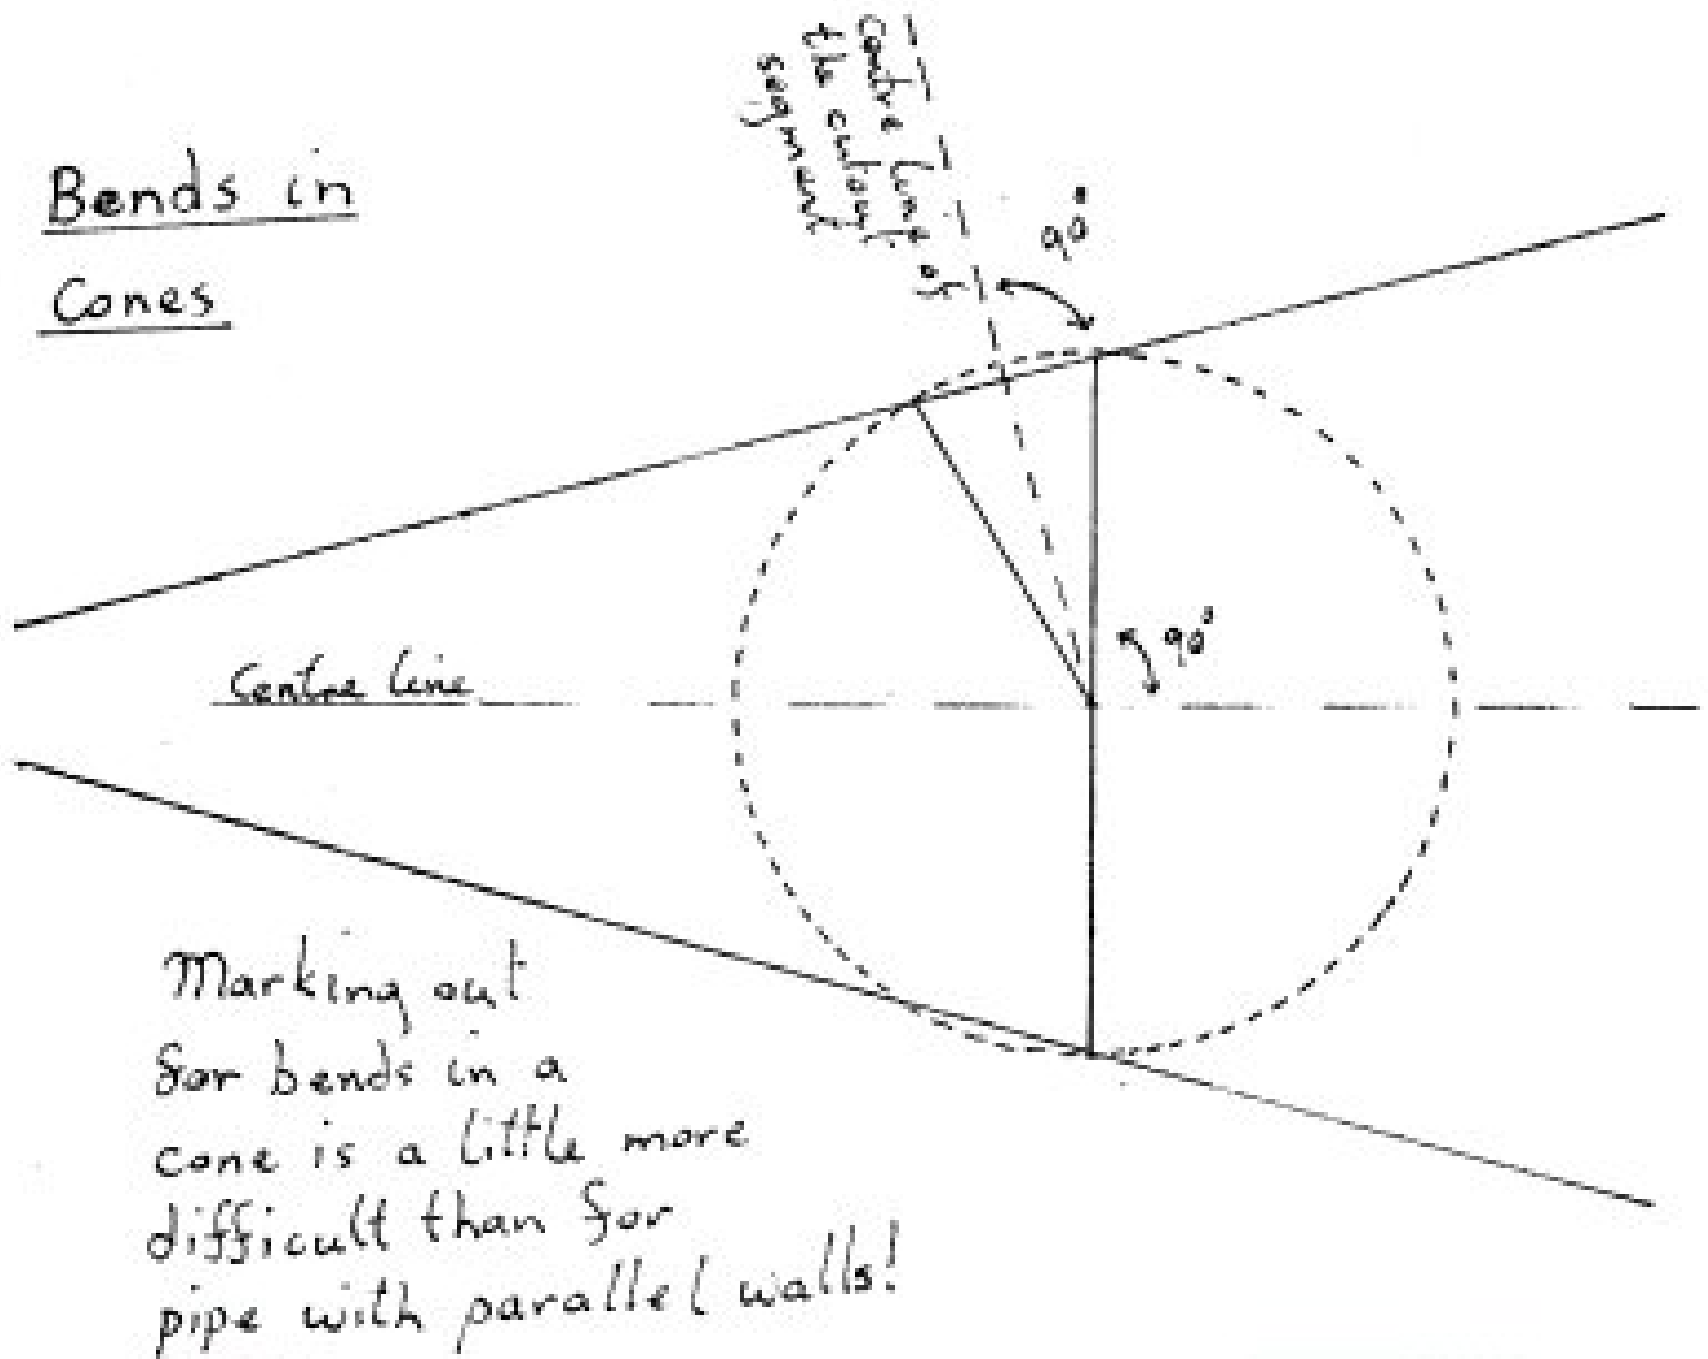 Bends in
Cones
Centre line of
the cutout
segment
90°
90°
Centre line
Marking out
for bends in a
cone is a little more
difficult than for
pipe with parallel walls!